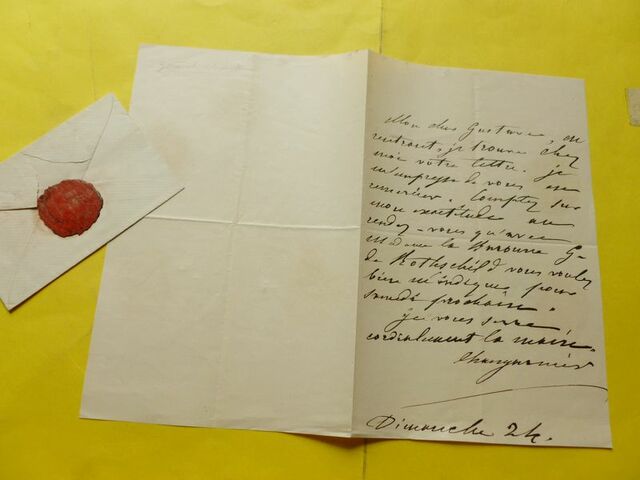 Mon cher Gustave, en
rentrant, je trouve chez
moi votre lettre. Je
m'empresse de vous en
remercier. Comptez sur
mon exactitude au
rendez-vous qu'avec
Madame la Baronne G.
de Rothschild vous voulez
bien m'indiquer pour
samedi prochain.
je vous serre
cordialement la main.
Changarnier
Dimanche 24.